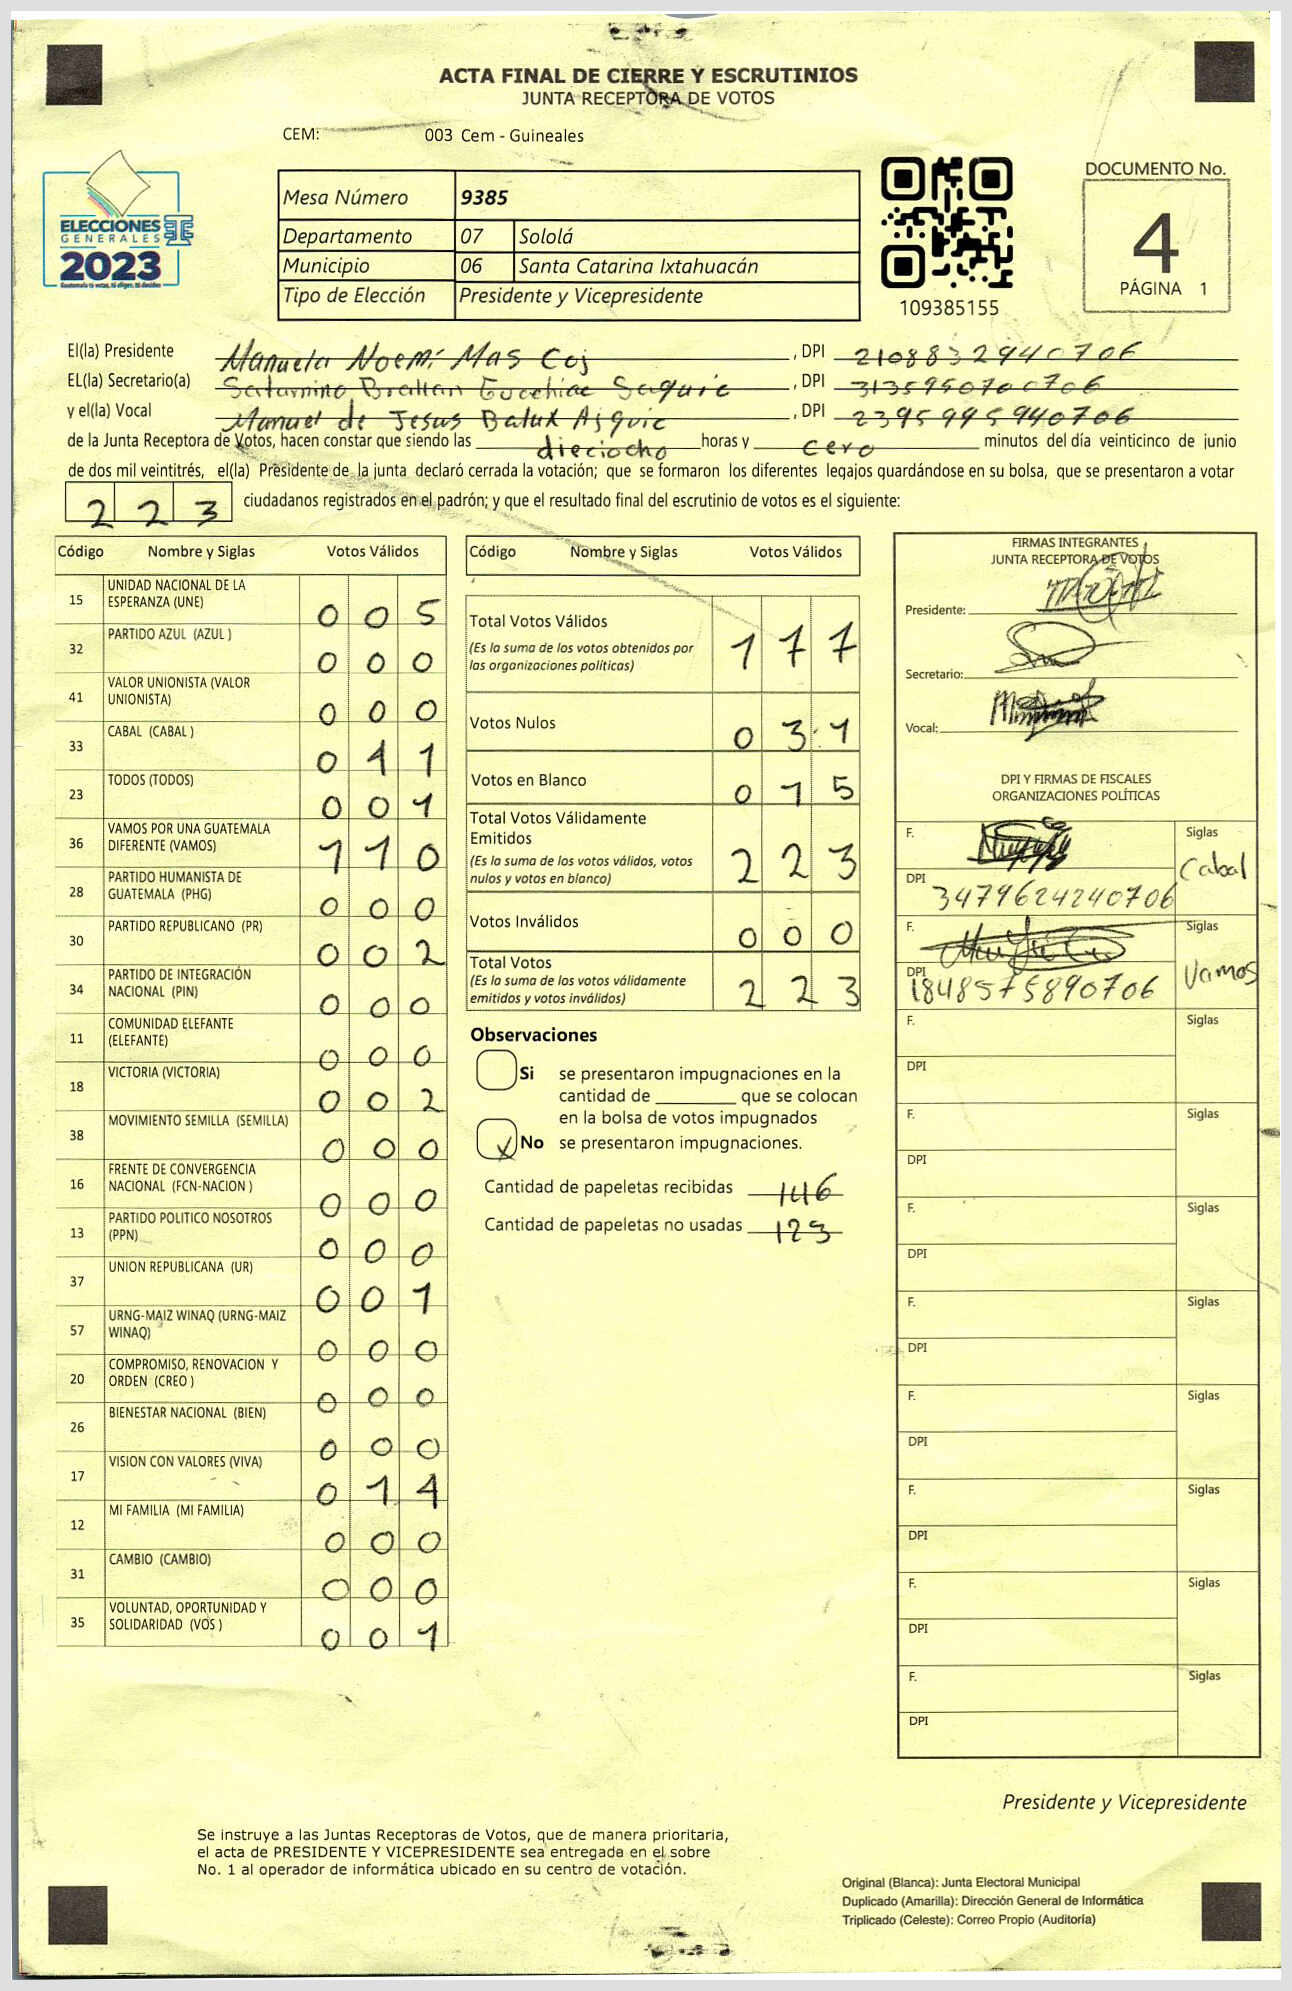 ACTA FINAL DE CIERRE Y ESCRUTINIOS
JUNTA RECEPTORA DE VOTOS
CEM: 003 Cem - Guineales
ELECCIONES
GENERALES
2023
Guatemala tú votas, tú eliges, tú decides
Mesa Número 9385
Departamento 07 Sololá
Municipio 06 Santa Catarina Ixtahuacán
Tipo de Elección Presidente y Vicepresidente
109385155
DOCUMENTO No.
4
PÁGINA 1
El(la) Presidente Manuela Noemí Mas Coj , DPI 2108832940706
EL(la) Secretario(a) Saturnino Saquic , DPI 3135950700706
y el(la) Vocal Manuel de Jesus Balux Ajquic , DPI 2395995940706
de la Junta Receptora de Votos, hacen constar que siendo las dieciocho horas y cero minutos del día veinticinco de junio
de dos mil veintitrés, el(la) Presidente de la junta declaró cerrada la votación; que se formaron los diferentes legajos quardándose en su bolsa, que se presentaron a votar
223 ciudadanos registrados en el padrón; y que el resultado final del escrutinio de votos es el siguiente:
Código Nombre y Siglas Votos Válidos
15 UNIDAD NACIONAL DE LA ESPERANZA (UNE) 005
32 PARTIDO AZUL (AZUL ) 000
41 VALOR UNIONISTA (VALOR UNIONISTA) 000
33 CABAL (CABAL ) 011
23 TODOS (TODOS) 001
36 VAMOS POR UNA GUATEMALA DIFERENTE (VAMOS) 110
28 PARTIDO HUMANISTA DE GUATEMALA (PHG) 000
30 PARTIDO REPUBLICANO (PR) 002
34 PARTIDO DE INTEGRACIÓN NACIONAL (PIN) 000
11 COMUNIDAD ELEFANTE (ELEFANTE) 000
18 VICTORIA (VICTORIA) 002
38 MOVIMIENTO SEMILLA (SEMILLA) 000
16 FRENTE DE CONVERGENCIA NACIONAL (FCN-NACION ) 000
13 PARTIDO POLITICO NOSOTROS (PPN) 000
37 UNION REPUBLICANA (UR) 001
57 URNG-MAIZ WINAQ (URNG-MAIZ WINAQ) 000
20 COMPROMISO, RENOVACION Y ORDEN (CREO ) 000
26 BIENESTAR NACIONAL (BIEN) 000
17 VISION CON VALORES (VIVA) 014
12 MI FAMILIA (MI FAMILIA) 000
31 CAMBIO (CAMBIO) 000
35 VOLUNTAD, OPORTUNIDAD Y SOLIDARIDAD (VOS ) 001
Código Nombre y Siglas Votos Válidos
Total Votos Válidos 177
(Es la suma de los votos obtenidos por
las organizaciones políticas)
Votos Nulos 031
Votos en Blanco 015
Total Votos Válidamente
Emitidos 223
(Es la suma de los votos válidos, votos
nulos y votos en blanco)
Votos Inválidos 000
Total Votos 223
(Es la suma de los votos válidamente
emitidos y votos inválidos)
Observaciones
Si se presentaron impugnaciones en la
cantidad de ________ que se colocan
en la bolsa de votos impugnados
X No se presentaron impugnaciones.
Cantidad de papeletas recibidas 146
Cantidad de papeletas no usadas 123
FIRMAS INTEGRANTES
JUNTA RECEPTORA DE VOTOS
Presidente:
Secretario:
Vocal:
DPI Y FIRMAS DE FISCALES
ORGANIZACIONES POLÍTICAS
F. Siglas
Cabal
DPI 3479624240706
F. Siglas
Vamos
DPI 1848575890706
F. Siglas
DPI
F. Siglas
DPI
F. Siglas
DPI
F. Siglas
DPI
F. Siglas
DPI
F. Siglas
DPI
F. Siglas
DPI
F. Siglas
DPI
Presidente y Vicepresidente
Se instruye a las Juntas Receptoras de Votos, que de manera prioritaria,
el acta de PRESIDENTE Y VICEPRESIDENTE sea entregada en el sobre
No. 1 al operador de informática ubicado en su centro de votación.
Original (Blanca): Junta Electoral Municipal
Duplicado (Amarilla): Dirección General de Informática
Triplicado (Celeste): Correo Propio (Auditoría)